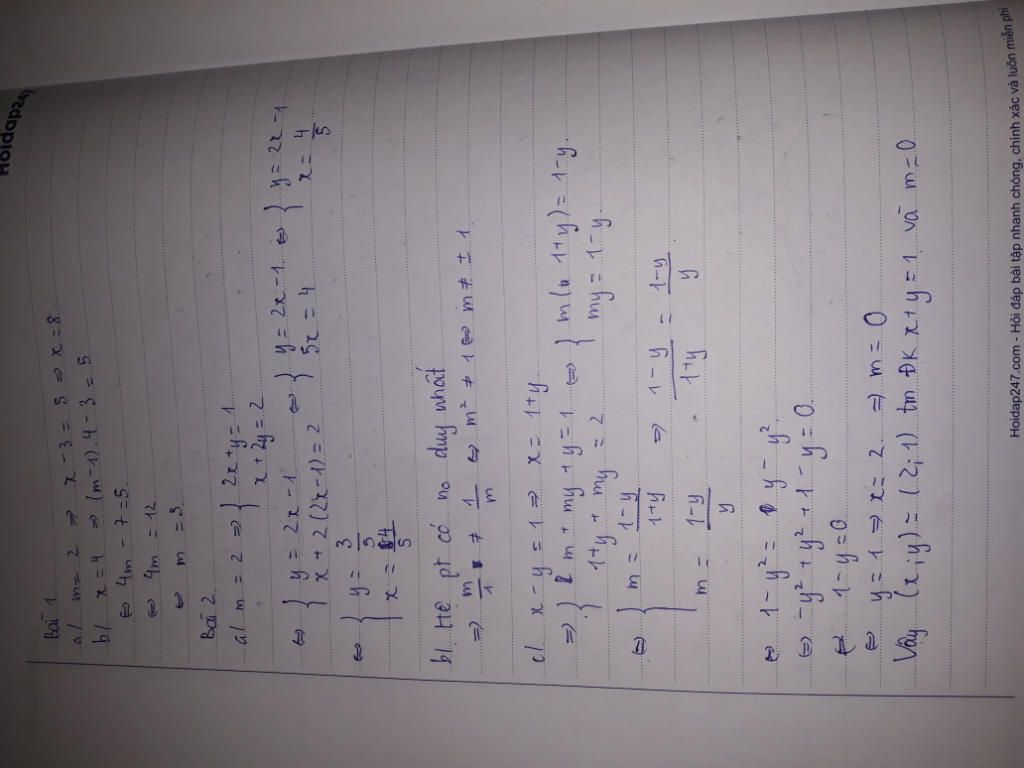 Hoidap247
Bài 1
a/ m = 2 => x - 3 = 5 => x = 8
b/ x = 4 => (m-1).4 - 3 = 5
<=> 4m - 7 = 5
<=> 4m = 12
<=> m = 3
Bài 2
a/ m = 2 => { 2x + y = 1
x + 2y = 2
<=> { y = 2x - 1 <=> { y = 2x - 1 <=> { y = 2x - 1
x + 2(2x-1) = 2 5x = 4 x = 4/5
<=> { y = 3/5
x = 4/5
b/. Hệ pt có no duy nhất
=> m/1 ≠ 1/m <=> m² ≠ 1 <=> m ≠ ± 1
c/ x - y = 1 => x = 1 + y
=> { m + my + y = 1 <=> { m( 1+y) = 1 - y.
1+y + my = 2 my = 1 - y.
<=> { m = 1-y/1+y => 1-y/1+y = 1-y/y
m = 1-y/y
<=> 1 - y² = y - y²
<=> -y² + y² + 1 - y = 0
<=> 1 - y = 0
<=> y = 1 => x = 2 => m = 0
Vậy (x;y) = (2;1) tm ĐK x + y = 1 và m = 0
Hoidap247.com - Hỏi đáp bài tập nhanh chóng, chính xác và luôn miễn phí